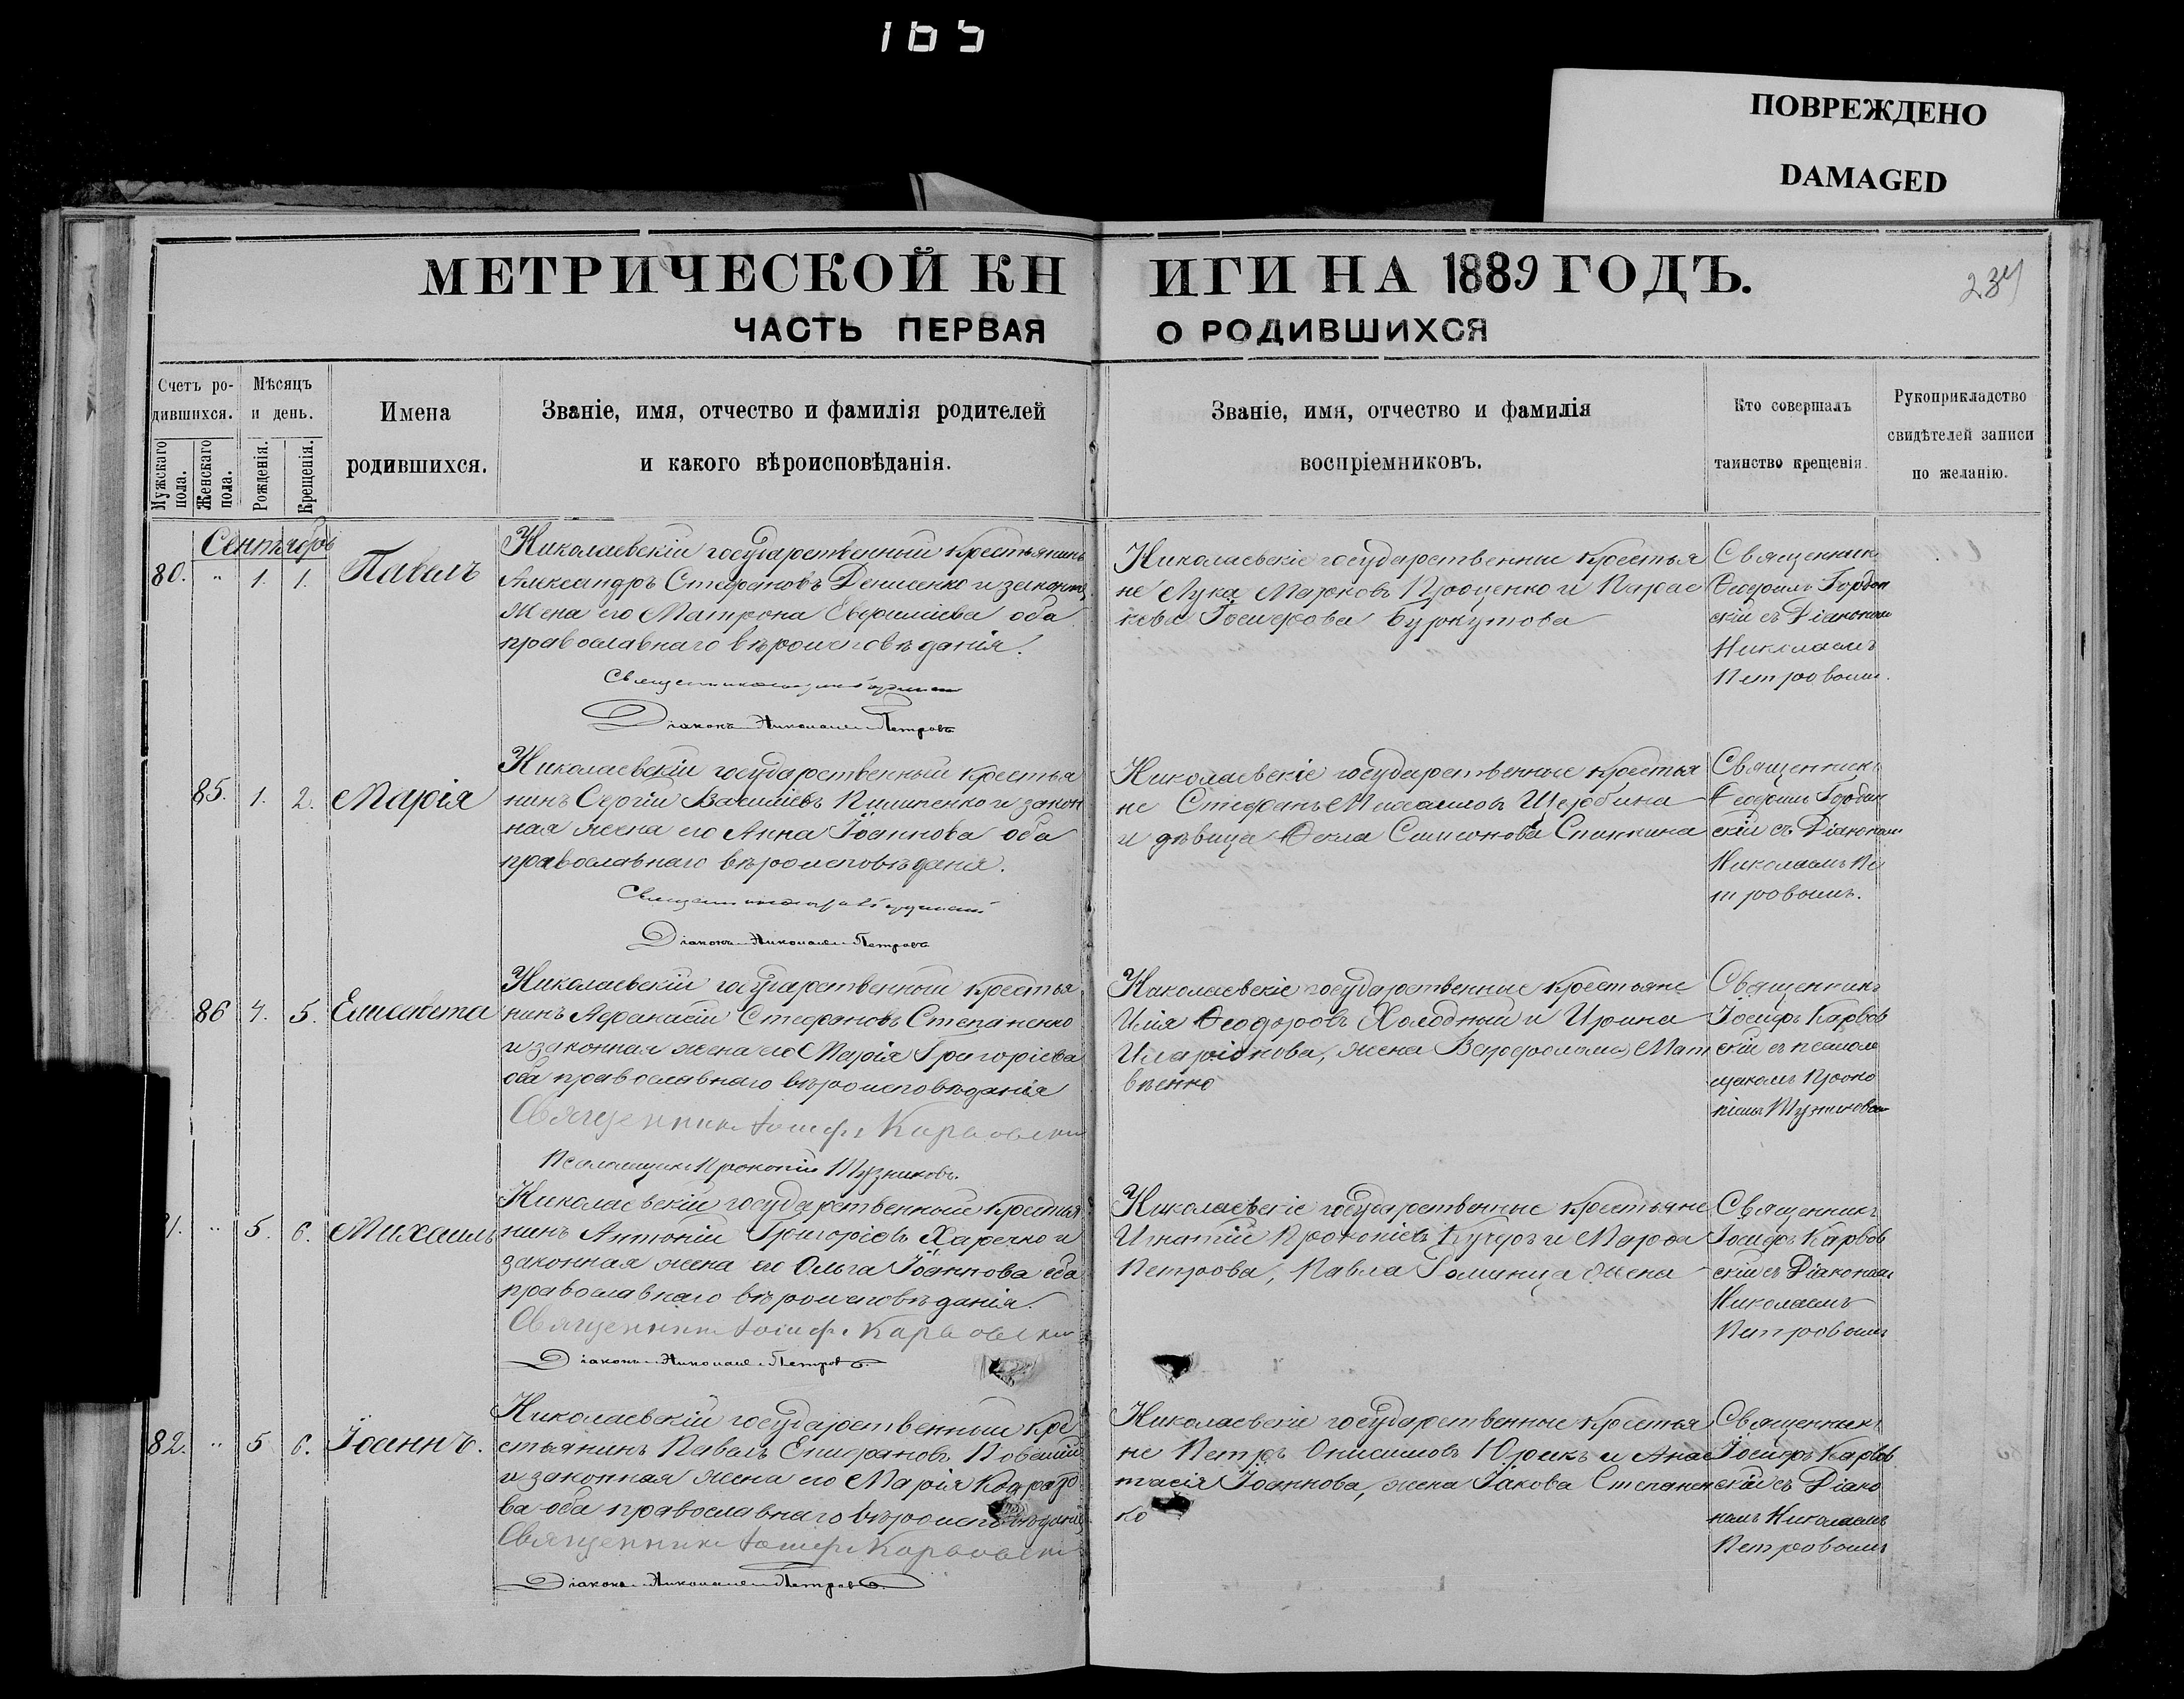 165
ПОВРЕЖДЕНО
DAMAGED
МЕТРИЧЕСКОЙ КНИГИ НА 1889 ГОДЪ.
234
ЧАСТЬ ПЕРВАЯ О РОДИВШИХСЯ
Счетъ родившихся.
Мужскаго пола.
Женскаго пола.
Мѣсяцъ и день.
Рожденія.
Крещенія.
Имена
родившихся.
Званіе, имя, отчество и фамилія родителей
и какого вѣроисповѣданія.
Званіе, имя, отчество и фамилія
воспріемниковъ.
Кто совершалъ
таинство крещенія.
Рукоприкладство
свидѣтелей записи
по желанію.
Сентябрь
80. " 1. 1. Павелъ
Николаевскій государственный крестьянинъ
Александръ Стефановъ Денисенко и законн
жена его Матрона Евфиміева оба
православнаго вѣроисповѣданія.
Діаконъ Николай Петровъ
Николаевскіе государственные крестья
не Лука Марковъ Проценко и Парас
кева Іосифова Буркутова
Священникъ
Ѳеофилъ
скій съ Діакономъ
Николаемъ
Петровымъ.
85. 1. 2. Марія
Николаевскій государственный крестья
нинъ Сергій Василіевъ Пилипенко и закон
ная жена его Анна Іоаннова оба
православнаго вѣроисповѣданія.
Діаконъ Николай Петровъ
Николаевскіе государственные крестья
не Стефанъ Михаиловъ Щербина
и дѣвица Ѳекла Симонова Спинкина
Священникъ
Ѳеофилъ
скій съ Діакономъ
Николаемъ Пе
тровымъ.
86 4. 5. Елисавета
Николаевскій государственный крестья
нинъ Афанасій Стефановъ Степаненко
и законная жена его Марія Григоріева
оба православнаго вѣроисповѣданія
Священникъ Іосифъ Карвовскій
Псаломщикъ Прокопій Тузниковъ.
Николаевскіе государственные крестьяне
Илія Ѳеодоровъ Холодный и Ирина
Иларіонова, жена Варфоломея Мат
вѣенко
Священникъ
Іосифъ Карвов
скій съ псалом
щикомъ Проко
піемъ Тузниковым
1. " 5. 6. Михаилъ
Николаевскій государственный крестья
нинъ Антоній Григоріевъ Харечко и
законная жена его Ольга Іоаннова оба
православнаго вѣроисповѣданія.
Священникъ Іосифъ Карвовскій
Діаконъ Николай Петровъ.
Николаевскіе государственные крестьяне
Игнатій Прокопіевъ Кучеръ и Марфа
Петрова, Павла Голинца жена
Священникъ
Іосифъ Карвов
скій съ Діакономъ
Николаемъ
Петровымъ
82. " 5 6. Іоаннъ.
Николаевскій государственный кре
стьянинъ Павелъ Епифановъ
и законная жена его Марія Кодрато
ва оба православнаго вѣроисповѣданія
Священникъ Іосифъ Карвовскій
Діаконъ Николай Петровъ.
Николаевскіе государственные крестья
не Петръ Онисимовъ Юрекъ и Анас
тасія Іоаннова, жена Іакова Степанен
ко
Священникъ
Іосифъ Карвов
скій съ Діако
номъ Николаемъ
Петровымъ